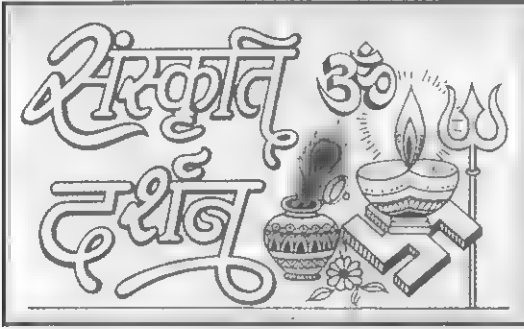 संस्कृति
ॐ
दर्शन